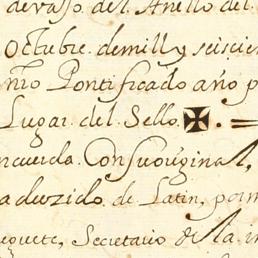 devajo del Anello del
Octubre de mill y seiscien
Pontificado año p
Lugar del Sello ✠ . =
concuerda. Con su original,
traduzido de Latin, por m
Secretario de la in